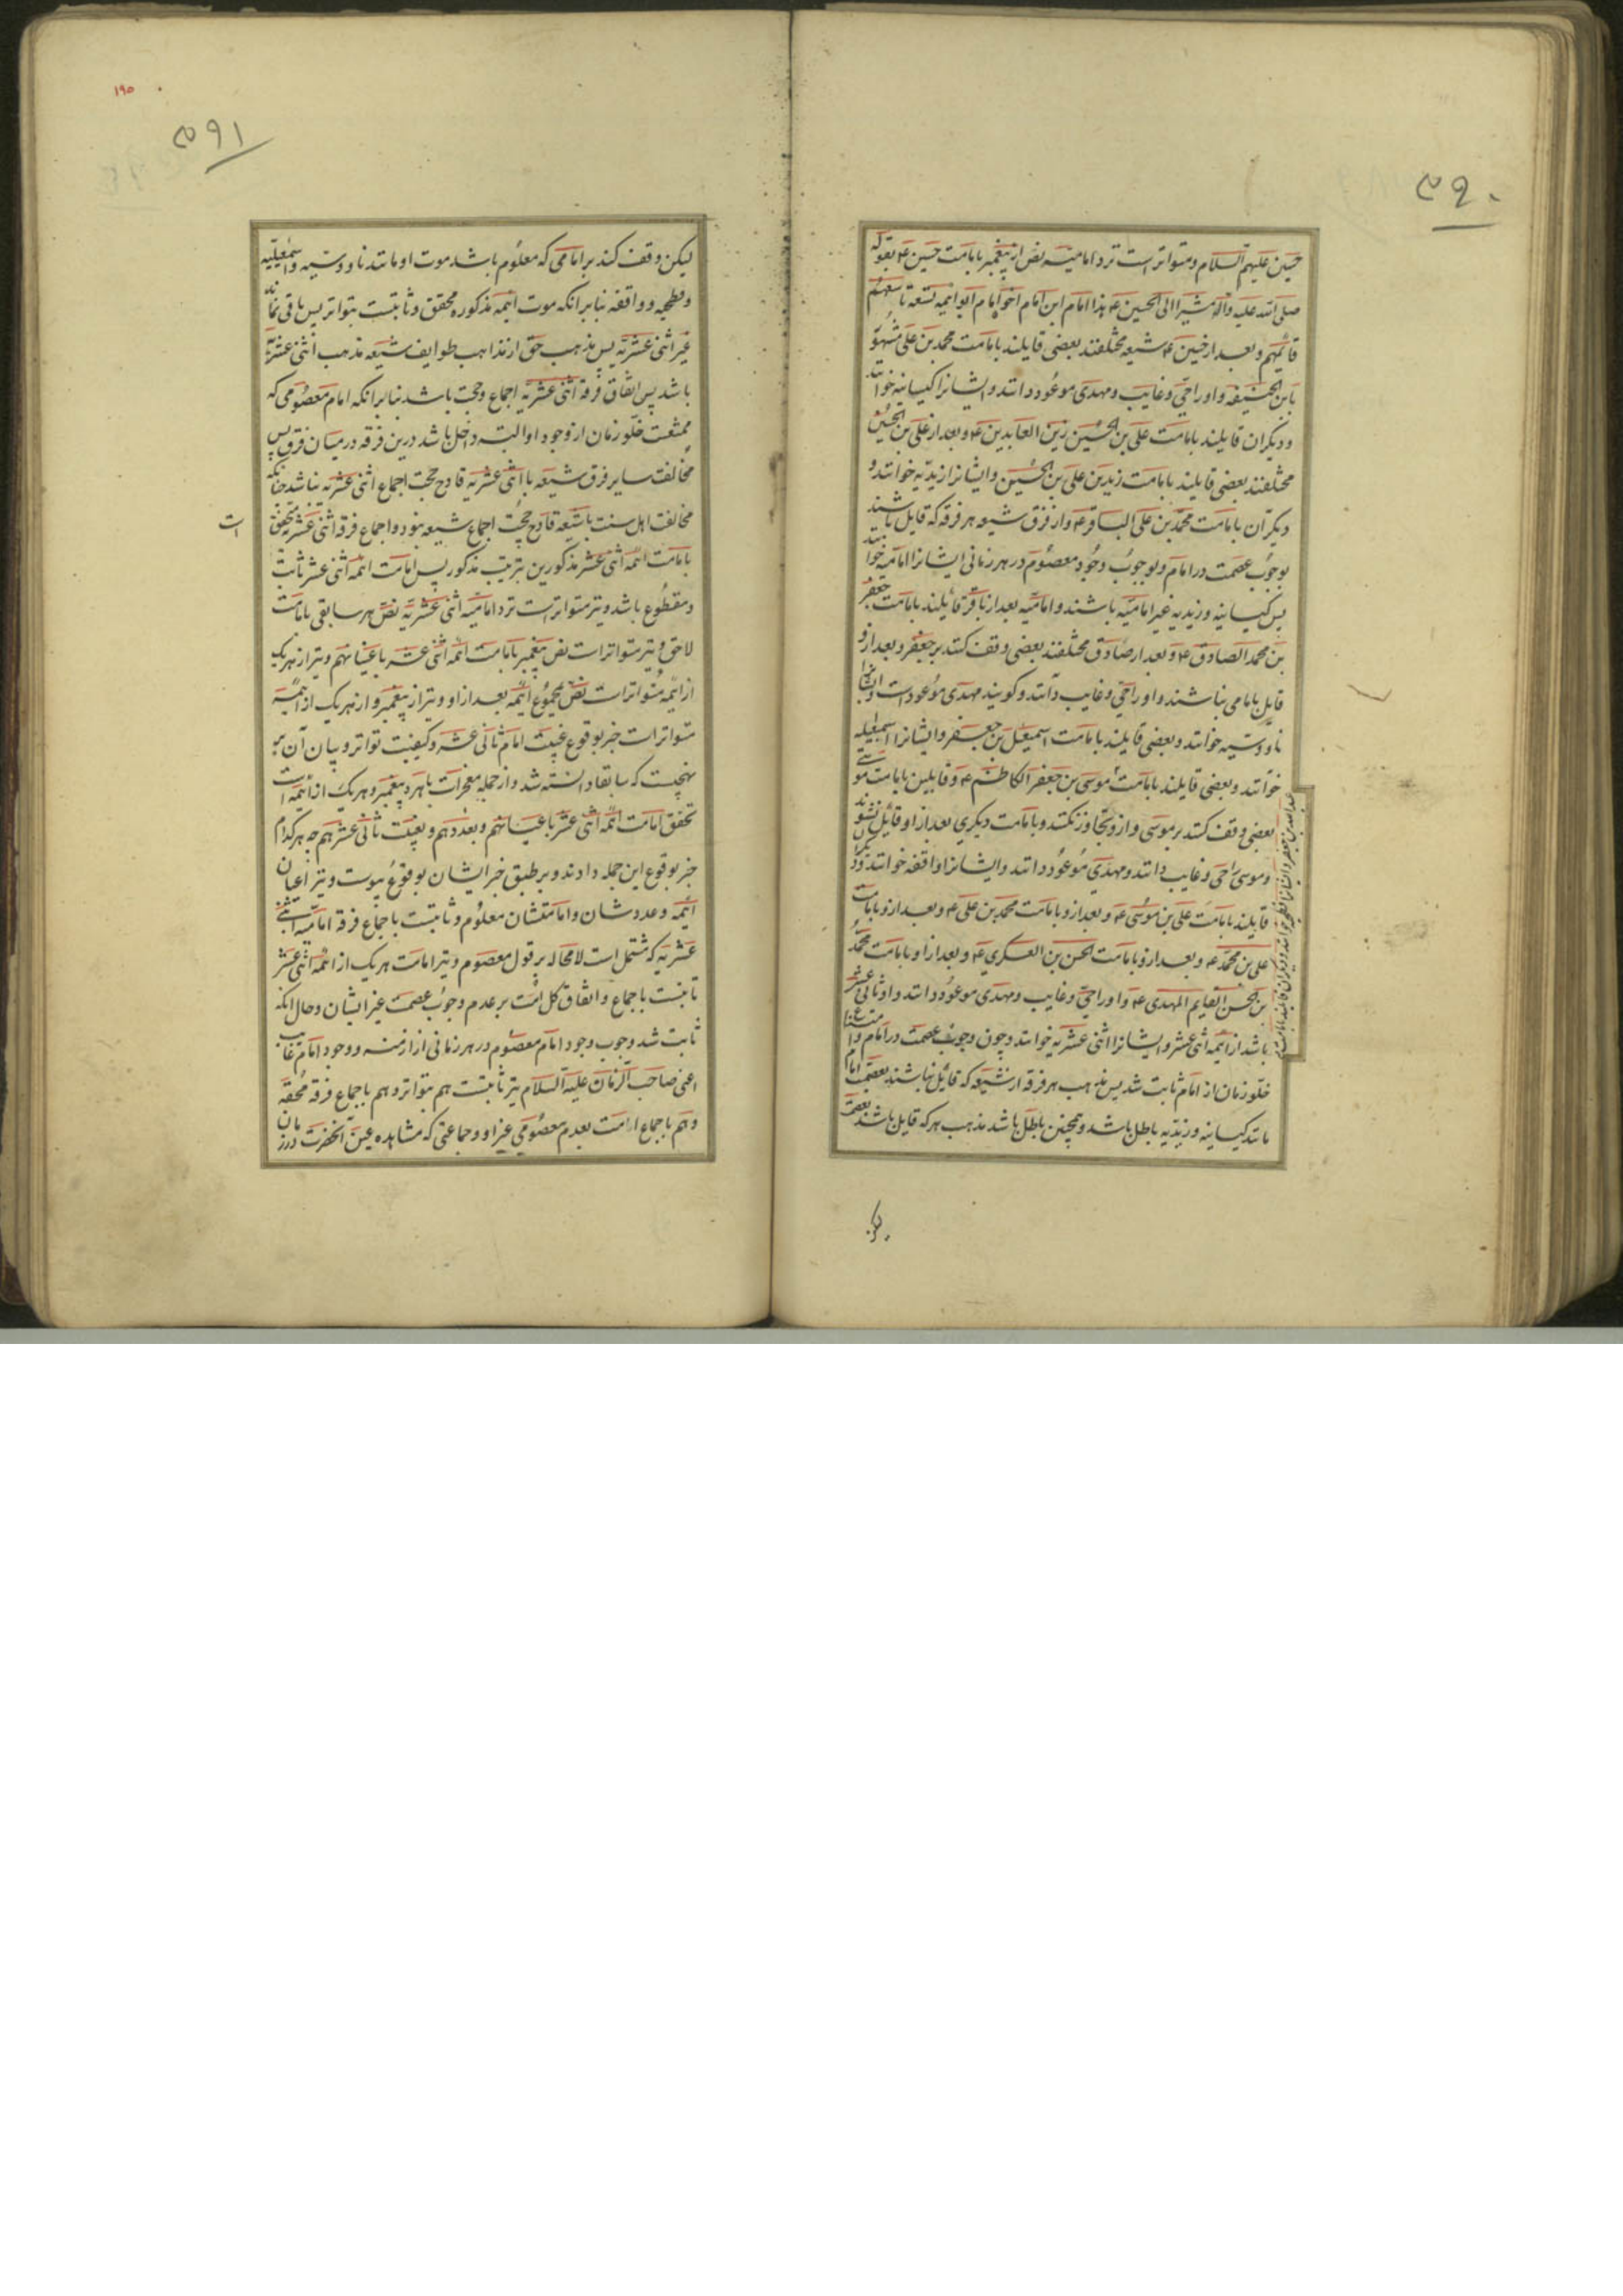 ۳۹۰
حسین علیهم السلام و متواتر است نزد امامیه نص از پیغمبر بامامت حسین ع بقوله
صلی الله علیه وآله مشیرا الی الحسین ع هذا امام ابن امام اخو امام ابو ائمه تسعة تاسعهم
قائمهم و بعد از حسین ع شیعه مختلفند بعضی قایلند بامامت محمد بن علی مشهور
بابن الحنیفه و او را حی و غایب و مهدی موعود دانند و ایشانرا کیسانیه خوانند
و دیگران قایلند بامامت علی بن الحسین زین العابدین ع و بعد از علی بن الحسین
مختلفند بعضی قایلند بامامت زید بن علی بن الحسین و ایشانرا زیدیه خوانند و
دیگران بامامت محمد بن علی الباقر ع و از فرق شیعه هر فرقه که قایل باشند
بوجوب عصمت در امام و بوجوب وجود معصوم در هر زمانی ایشانرا امامیه خوانند
پس کیسانیه و زیدیه غیر امامیه باشند و امامیه بعد از باقر قائیلند بامامت جعفر
بن محمد الصادق ع و بعد از صادق مختلفند بعضی وقف کنند بر جعفر و بعد از و
قایل بامامی نباشند و او را حی و غایب دانند و کویند مهدی موعود است و ایشانرا
ناووسیه خوانند و بعضی قایلند بامامت اسمعیل بن جعفر و ایشانرا اسمعیلیه
خوانند و بعضی قایلند بامامت موسی بن جعفر الکاظم ع و قایلین بامامت موسی
بعضی وقف کنند بر موسی و ازو تجاوز نکنند و بامامت دیکری بعد از او قائل نشوند
و موسی را حی و غایب دانند و مهدی موعود دانند و ایشانرا واقفه خوانند و دیگران
قایلند بامامت علی بن موسی ع و بعد از و بامامت محمد بن علی ع و بعد از و بامامت
علی بن محمد ع و بعد از و بامامت الحسن بن العسکری ع و بعد از او بامامت محمد
بن الحسن القایم المهدی ع و او را حی و غایب و مهدی موعود دانند و او ثانی عشر
باشد از ائیمه اثنی عشر و ایشانرا اثنی عشریه خوانند و چون وجوب عصمت در امام و امتناع
خلو زمان از امام ثابت شد پس مذهب هر فرقه از شیعه که قائل نباشند بعصمت امام
مانند کیسانیه و زیدیه باطل باشد و همچنین باطل باشد مذهب هر که قایل باشد بعصمت
عبدالله بن جعفر و ایشانرا فطحیه خوانند و دیگران قایلند بامامت
لیکن
۱۹۵
۳۹۱
لیکن وقف کند بر امامی که معلوم باشد موت او مانند ناووسیه و اسمعیلیه
و فطحیه و واقفه بنابر انکه موت ائیمه مذکوره محقق و ثابتست بتواتر پس باقی نماند
غیر اثنی عشریه پس مذهب حق از مذاهب طوایف شیعه مذهب اثنی عشریه
باشد پس اتفاق فرقه اثنی عشریه اجماع و حجت باشد بنابر انکه امام معصومی که
ممتنعست خلو زمان از وجود او البته داخل باشد درین فرقه در میان فرق پس
مخالفت سایر فرق شیعه با اثنی عشریه قادح حجیت اجماع اثنی عشریه نباشد چنانکه
مخالفت اهل سنت با شیعه قادح حجیت اجماع شیعه نبود و اجماع فرقه اثنی عشریه متحقق
است
بامامت ائمه اثنی عشر مذکورین بترتیب مذکور پس امامت ائمه اثنی عشر ثابت
و مقطوع باشد و نیز متواتر است نزد امامیه اثنی عشریه نص هر سابقی بامامت
لاحق و نیز متواتر است نص پیغمبر بامامت ائمه اثنی عشر باعیانهم و نیز از هر یک
از ائمه متواتر است نص بمجموع ائیمه بعد از او و نیز از پیغمبر و از هر یک از ائمه
متواتر است خبر بوقوع غیبت امام ثانی عشر و کیفیت تواتر و بیان آن بر
نهجیست که سابقا دانسته شد و از جمله معجزات باهره پیغمبر و هر یک از ائیمه است
تحقق امامت ائمه اثنی عشر باعیانهم و بعددهم و بغیبت ثانی عشرهم چه هر کدام
خبر بوقوع این جمله دادند و بر طبق خبر ایشان بوقوع پیوست و نیز اعیان
ائیمه و عددشان و امامتشان معلوم و ثابتست باجماع فرقه امامیه اثنی
عشریه که مشتمل است لامحاله بر قول معصوم و نیز امامت هر یک از ائمه اثنی عشر
ثابتست باجماع و اتفاق کل امت بر عدم وجوب عصمت غیر ایشان و حال انکه
ثابت شد وجوب وجود امام معصوم در هر زمانی از ازمنه و وجود امام غایب
اعنی صاحب الزمان علیه السلام نیز ثابتست هم بتواتر و هم باجماع فرقه محقه
و هم باجماع امت بعدم معصومی غیر او و جماعتی که مشاهده عین انحضرت در زمان